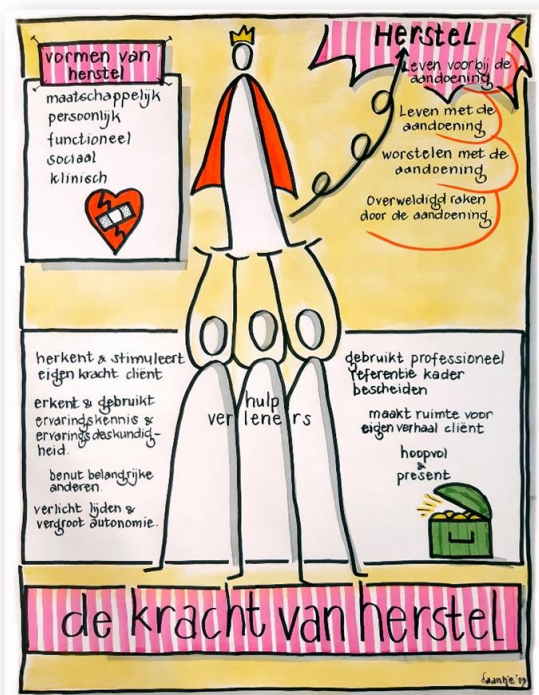 vormen van
herstel
maatschappelijk
persoonlijk
functioneel
sociaal
klinisch
Herstel
Leven voorbij de
aandoening
Leven met de
aandoening
worstelen met de
aandoening
Overweldigd raken
door de aandoening.
herkent & stimuleert
eigen kracht cliënt
erkent & gebruikt
ervaringskennis &
ervaringsdeskundig-
heid.
benut belangrijke
anderen.
verlicht lijden &
vergroot autonomie.
hulp
verleners
gebruikt professioneel
referentie kader
bescheiden
maakt ruimte voor
eigen verhaal cliënt
hoopvol
&
present
de kracht van herstel